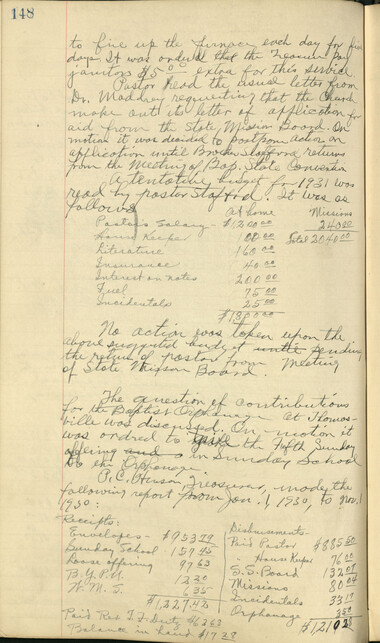 148
to fire up the furnace each day for five
days. It was ordered that the Treasurer pay
janitors $5.00 extra for this service
Pastor Read the usual letter from
Dr. Maddrey requesting that the Church
make out its letter of application for
aid from the State Mission Board. On
motion it was decided to postpone action on
application until Brother Stafford returns
from the Meeting of Bap. State Convention
A tentative budget for 1931 was
read by pastor Stafford. It was as
follows
At home Missions
Pastor's Salary - $1200.00 240.00
House Keeper 100.00 Total 2040.00
Literature 160.00
Insurance 40.00
Interest on notes 200.00
Fuel 75.00
Incidentals 25.00
$1800.00
No action was taken upon the
above suggested budget until pending
the return of pastor from meeting
of State Mission Board.
The question of contributions
for the Baptist Orphanage at Thomas-
ville was discussed. On motion it
was ordred to give the Fifth Sunday
offering and in Sunday School
to the Orphanage.
P.C. Treasurer, made the
following report from Jan. 1, 1930, to Nov. 1
1930:
Receipts:
Envelopes - $953.29
Sunday School 159.45
Loose offering 97.63
B.Y.P.U. 12.20
W.M.S. 6.35
$1,227.42
Balance in hand $17.28
Disbursements-
Paid Pastor $885.50
House Keeper 76.00
S.S. Board 132.07
Missions 80.04
Incidentals 33.17
Orphanage 3.50